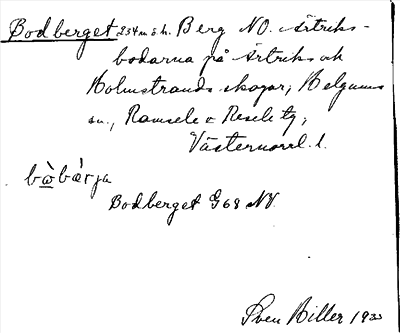 Bodberget 234 m ö.h. Berg NO. Ärtriks-
bodarna på Ärtriks och
Holmstrands skogar, Helgums
sn., Ramsele o Resele tg,
Västernorrl. l.
bò̲bæ̀rja
Bodberget G68 NV.
Sven Hiller 1933